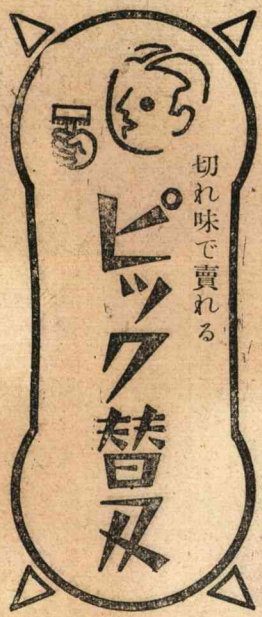 切れ味で賣れる
ピック替刄